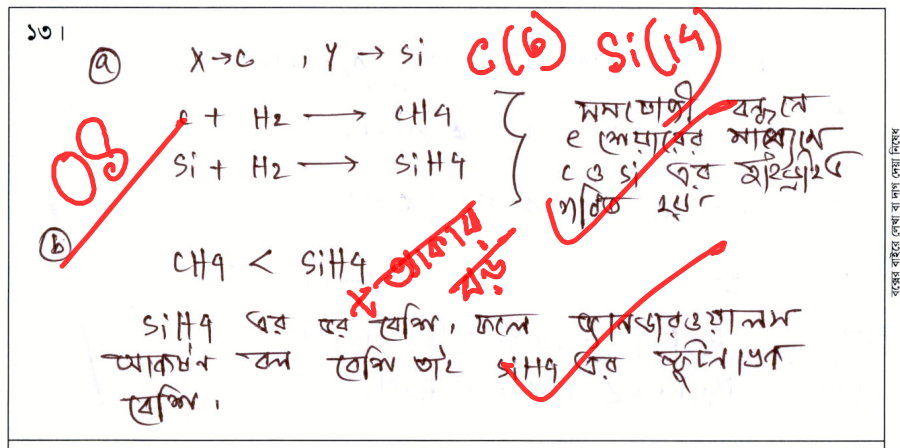 ১৩।
ⓐ X→C , Y → Si C(6) Si(14)
C + H2 ⟶ CH4 সমযোজী বন্ধনে
e শেয়ারের মাধ্যমে
Si + H2 ⟶ SiH4 C ও Si এর হাইড্রাইড
গঠিত হয়
08
ⓑ
CH4 < SiH4 × আকার বড়
SiH4 এর ভর বেশি, ফলে ভ্যানডারওয়ালস
আকর্ষন বল বেশি তাই SiH4 এর স্ফুটনাঙ্ক
বেশি।
বক্সের বাইরে লেখা বা দাগ দেয়া নিষেধ